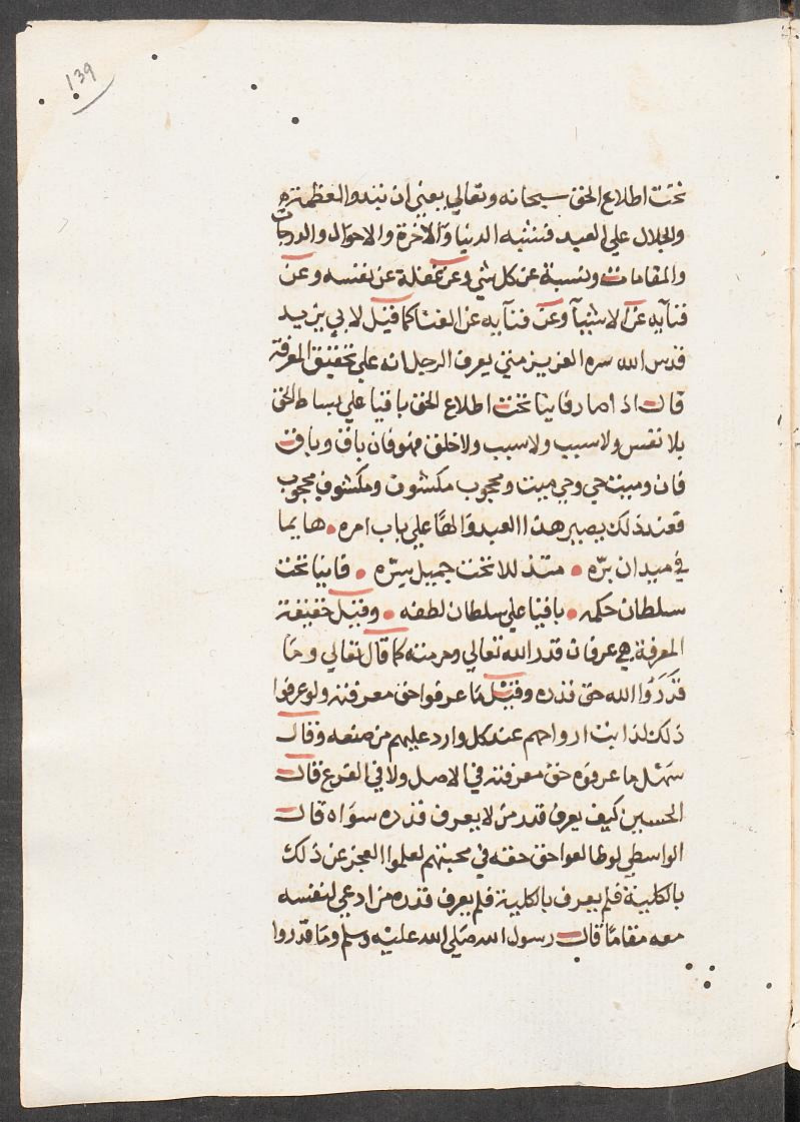 139
تحت اطلاع الحق سبحانه وتعالي يعني ان تبدو العظمة
والجلال علي العبد فتنسّيه الدنيا والآخرة والاحوال والدرجات
والمقامات وتنسية عن كل شي وعن عقله وعن نفسه وعن
فنآيه عن الاشيآ وعن فنآيه عن الفنا كما قيل لابي يزيد
قدس الله سره العزيز متي يعرف الرجل انه علي تحقيق المعرفة
قال اذا صار فانيا تحت اطلاع الحق باقيا علي بساط الحق
بلا نفس ولا سبب ولا سبب ولا خلق فهو فان باق وباق
فان وميت حي وحي ميت ومحجوب مكشوف ومكشوف محجوب
فعند ذلك يصير هذا العبد والهًا علي باب امره • هايما
في ميدان برّه • متذللا تحت جميل سترّه • فانيا تحت
سلطان حكمه • باقيا علي سلطان لطفه • وقيل حقيقة
المعرفة هي عرفان قدر الله تعالي وحرمته كما قال تعالي وما
قَدَرَوُا الله حق قدره وقيل مَا عرفوا حق معرفته ولو عرفوا
ذلك لذابت ارواحهم عند كل وارد عليهم من صنعه وقال
سَهْل ما عرفوه حق معرفته في الاصل ولا في الفرع قال
الحسين كيف يعرف قدر من لا يعرف قدره سوَاه قال
الواسطي لو طالعوا حق حقه في محبتهم لعلموا العجز عن ذلك
بالكلية فلم يعرف بالكلية فلم يعرف قدره من ادعي لنفسه
معه مقامًا قال رسول الله صَلي الله عليْه وسلم ومَا قدّروا